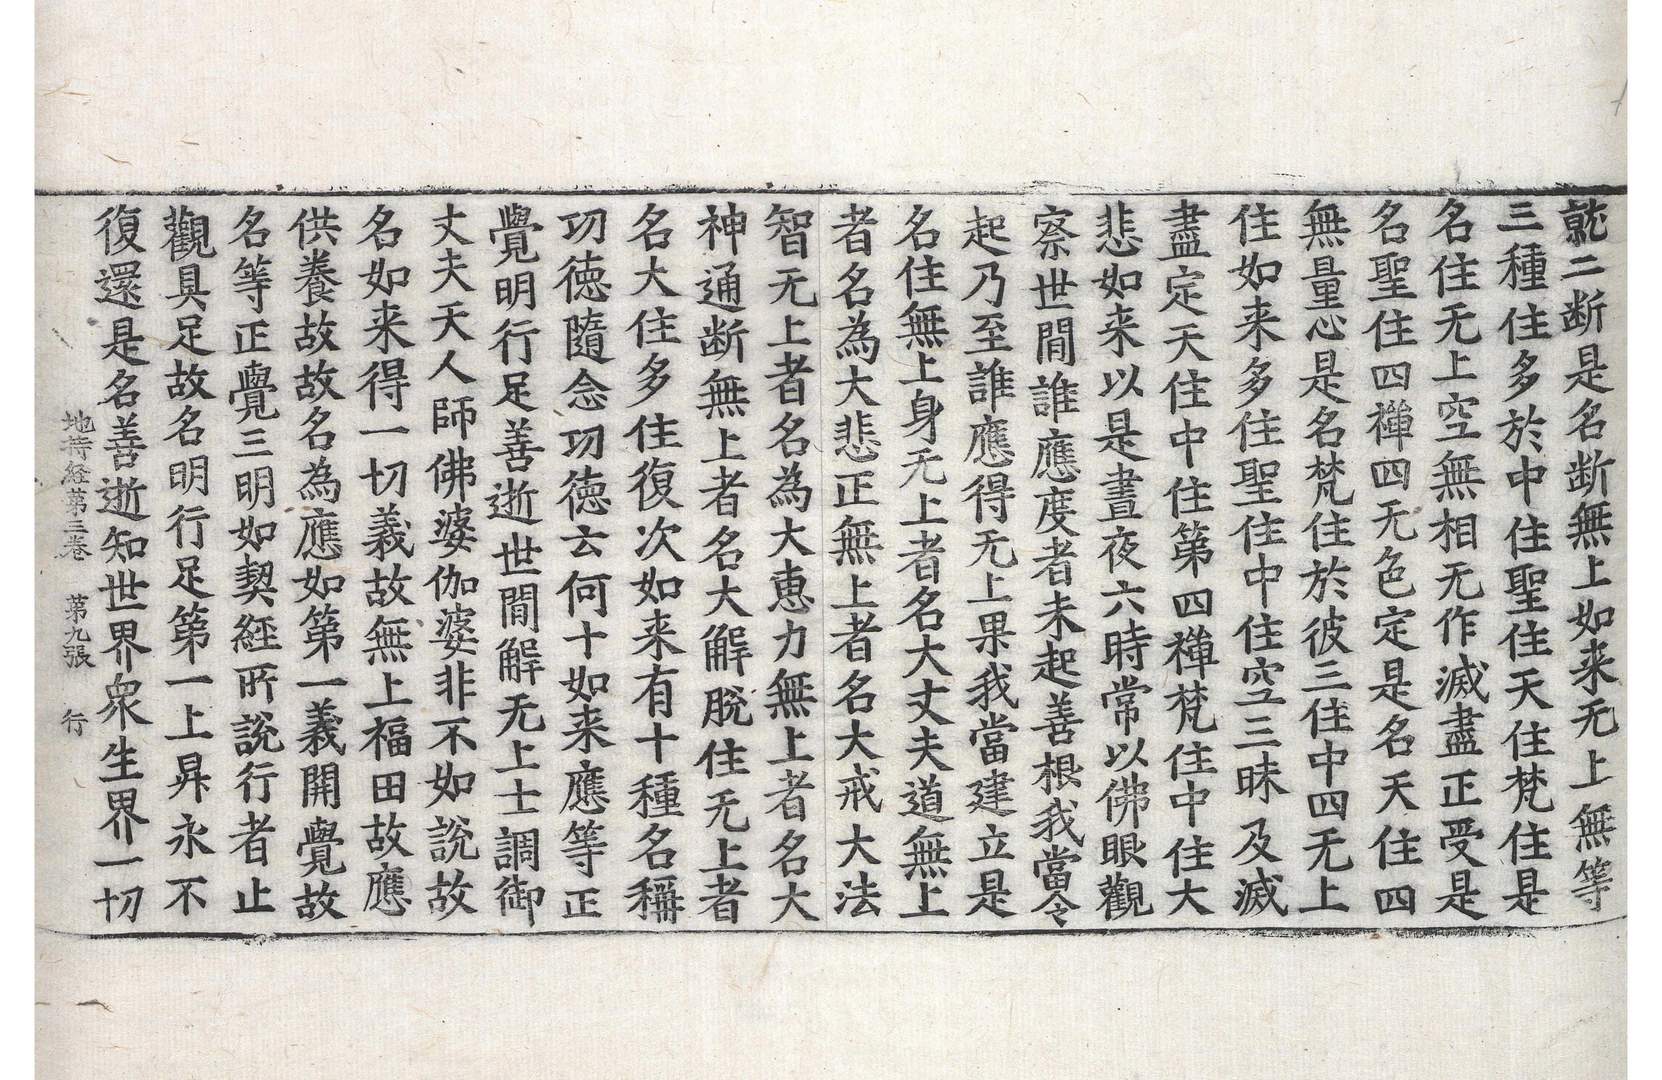 就二断是名断無上如来无上無等
三種住多於中住聖住天住梵住是
名住无上空無相无作滅盡正受是
名聖住四禅四无色定是名天住四
無量心是名梵住於彼三住中四无上
住如来多住聖住中住空三昧及滅
盡定天住中住第四禅梵住中住大
悲如来以是晝夜六時常以佛眼觀
察世間誰應度者未起善根我當令
起乃至誰應得无上果我當建立是
名住無上身无上者名大丈夫道無上
者名為大悲正無上者名大戒大法
智无上者名為大恵力無上者名大
神通断無上者名大解脱住无上者
名大住多住復次如来有十種名稱
功徳隨念功徳云何十如来應等正
覺明行足善逝世間解无上士調御
丈夫天人師佛婆伽婆非不如說故
名如来得一切義故無上福田故應
供養故故名為應如第一義開覺故
名等正覺三明如契經所說行者止
觀具足故名明行足第一上昇永不
復還是名善逝知世界衆生界一切
地持経第三巻　第九張　行